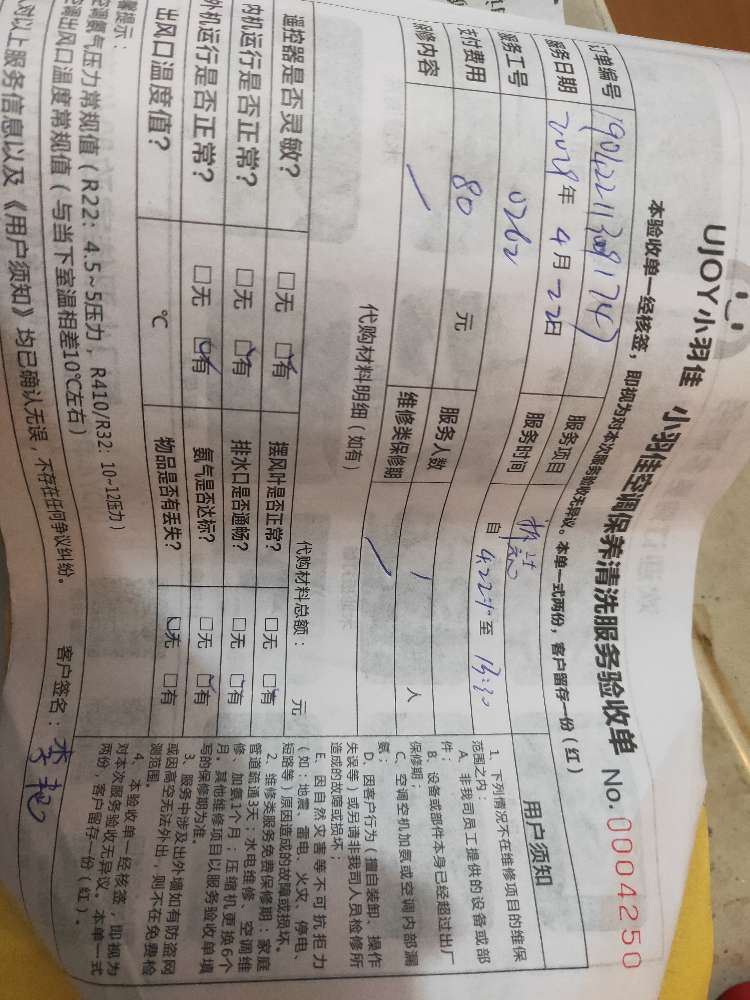 UJOY小羽佳 小羽佳空调保养清洗服务验收单 No.0004250
本验收单一经核签，即视为对本次服务验收无异议。本单一式两份，客户留存一份（红）
订单编号 服务项目
服务日期 年 4月22日 服务时间 自 至 13:30
服务工号 0262
支付费用 80 元 服务人数 1 人
保修内容 维修类保修期
代购材料明细（如有） 代购材料总额： 元
遥控器是否灵敏？ □无 □有 摆风叶是否正常？ □无 □有
内机运行是否正常？ □无 □有 排水口是否通畅？ □无 □有
外机运行是否正常？ □无 □有 氨气是否达标？ □无 □有
出风口温度值？ ℃ 物品是否有丢失？ □无 □有
馨提示：
空调氨气压力常规值（R22：4.5~5压力，R410/R32：10~12压力）
空调出风口温度常规值（与当下室温相差10℃左右）
人对以上服务信息以及《用户须知》均已确认无误，不存在任何争议纠纷。 客户签名：
用户须知
1、下列情况不在维修项目的维保
范围之内：
A、非我司员工提供的设备或部
件；
B、设备或部件本身已经超过出厂
保修期；
C、空调空机加氨或空调内部漏
氨；
D、因客户行为（擅自装卸、操作
失误等）或另请非我司人员检修所
造成的故障或损坏；
E、因自然灾害等不可抗拒力
（如：地震、雷电、火灾、停电、
短路等）原因造成的故障或损坏。
2、维修类服务免费保修期：家庭
管道疏通3天；水电维修、空调维
修、加氨1个月；压缩机更换6个
月。其他维修项目以服务验收单填
写的保修期为准。
3、服务中涉及出外墙如有防盗网
或因高空无法外出，则不在免费检
测范围。
4、本验收单一经核签，即视为
对本次服务验收无异议。本单一式
两份，客户留存一份（红）。